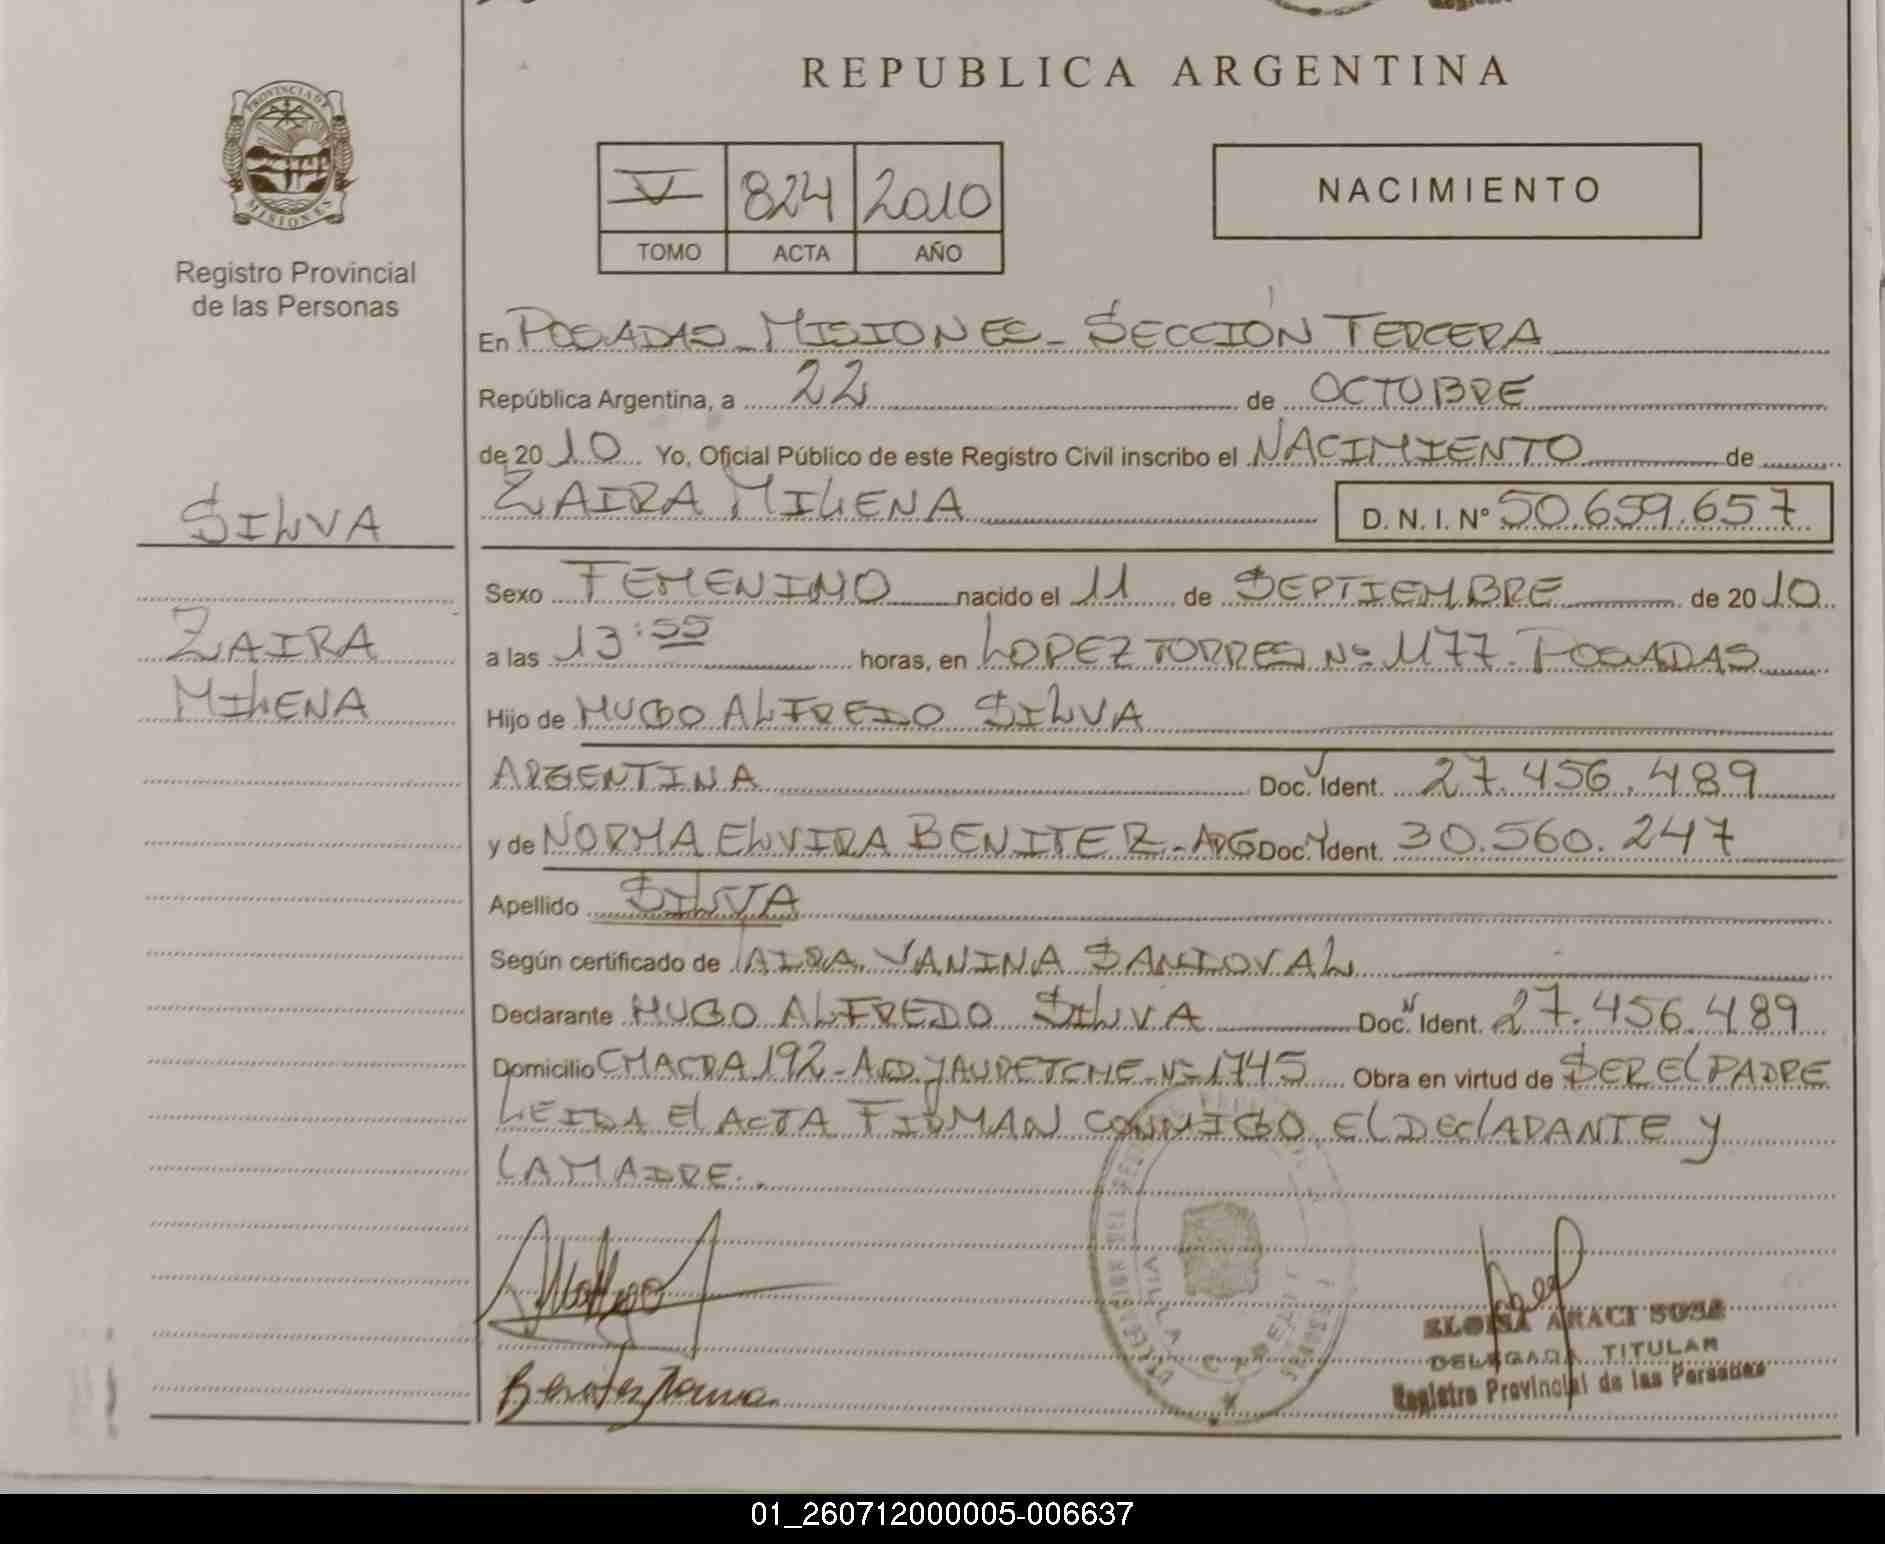 REPUBLICA ARGENTINA
PROVINCIA DE
MISIONES
Registro Provincial
de las Personas
V 824 2010
TOMO ACTA AÑO
NACIMIENTO
En POSADAS - MISIONES - SECCION TERCERA
República Argentina, a 22 de OCTUBRE
de 2010 Yo, Oficial Público de este Registro Civil inscribo el NACIMIENTO de
ZAIRA MILENA D. N. I. N° 50.659.657
SILVA
ZAIRA
MILENA
Sexo FEMENINO nacido el 11 de SEPTIEMBRE de 2010
a las 13:55 horas, en LOPEZ TORRES Nº 1177. POSADAS
Hijo de HUGO ALFREDO SILVA
ARGENTINA Doc. Ident. 27.456.489
y de NORMA ELVIRA BENITEZ - ARG Doc. Ident. 30.560.247
Apellido SILVA
Según certificado de VANINA SANDOVAL
Declarante HUGO ALFREDO SILVA Doc. Ident. 27.456.489
Domicilio CHACRA 192 - JAURETCHE Nº 1745 Obra en virtud de SER EL PADRE
LEIDA El ACTA FIRMAN CONMIGO El DEClARANTE y
LA MADRE.
Benitez Norma
ELOISA ARACI SOSA
DELEGADA TITULAR
Registro Provincial de las Personas
01_260712000005-006637